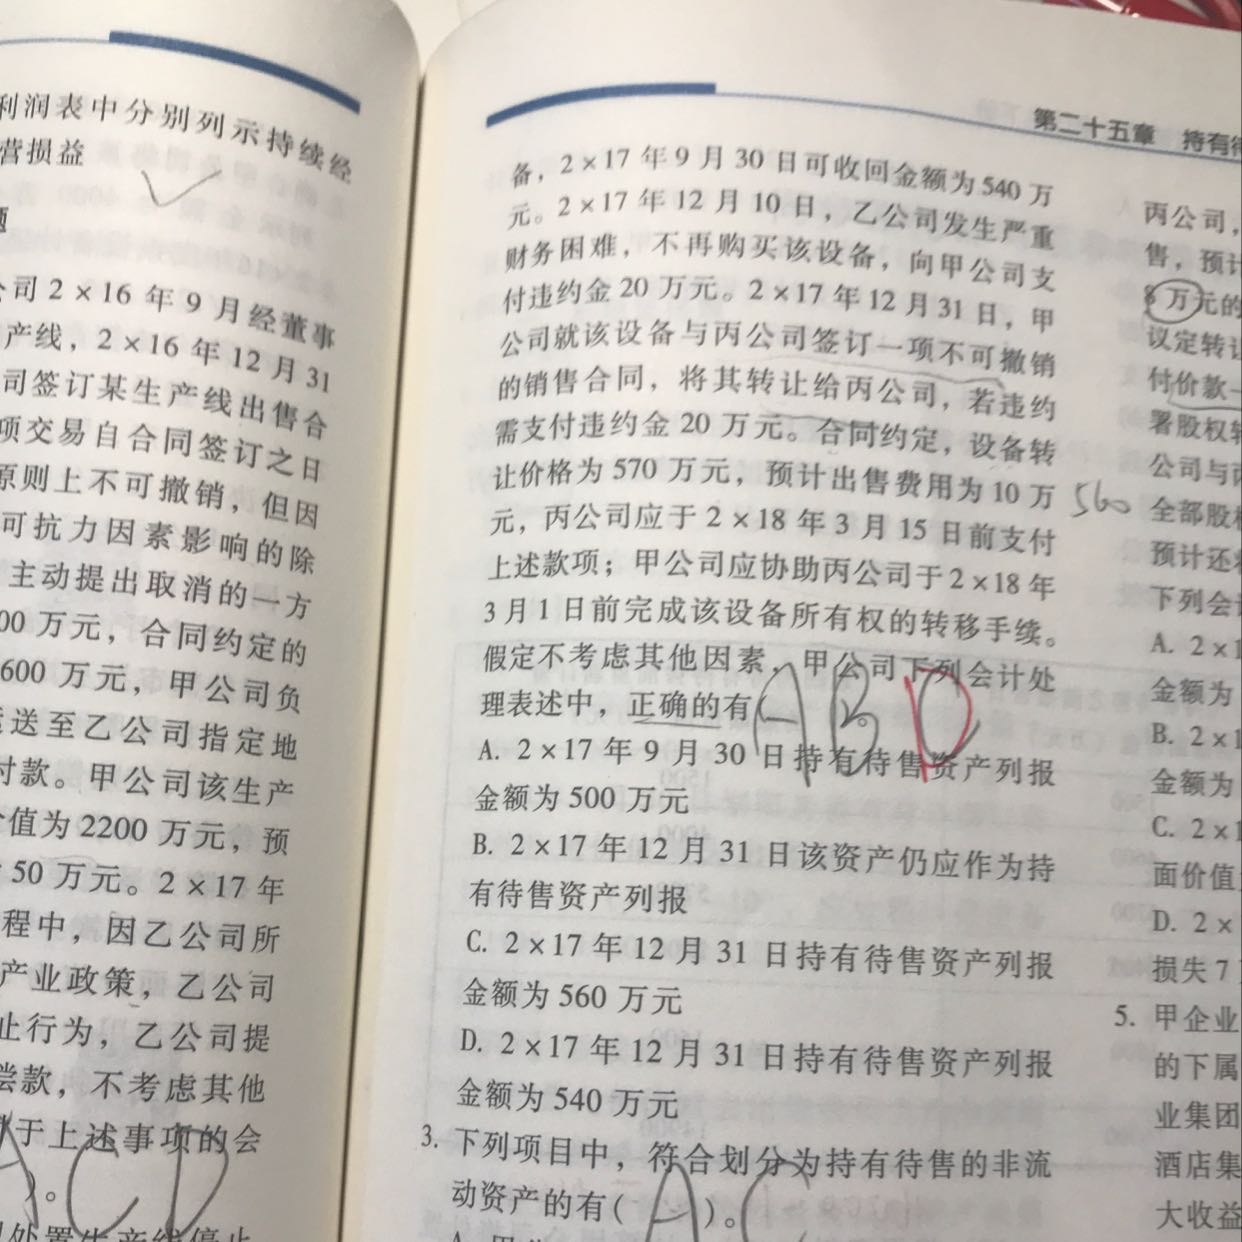 利润表中分别列示持续经
营损益
题
公司 2×16 年 9 月经董事
产线，2×16 年 12 月 31
司签订某生产线出售合
项交易自合同签订之日
原则上不可撤销，但因
可抗力因素影响的除
主动提出取消的一方
00 万元，合同约定的
600 万元，甲公司负
运送至乙公司指定地
付款。甲公司该生产
价值为 2200 万元，预
50 万元。2×17 年
程中，因乙公司所
产业政策，乙公司
止行为，乙公司提
偿款，不考虑其他
于上述事项的会
ACD
)。
处置生产线停止
第二十五章 持有待
备，2×17 年 9 月 30 日可收回金额为 540 万
元。2×17 年 12 月 10 日，乙公司发生严重
财务困难，不再购买该设备，向甲公司支
付违约金 20 万元。2×17 年 12 月 31 日，甲
公司就该设备与丙公司签订一项不可撤销
的销售合同，将其转让给丙公司，若违约
需支付违约金 20 万元。合同约定，设备转
让价格为 570 万元，预计出售费用为 10 万 560
元，丙公司应于 2×18 年 3 月 15 日前支付
上述款项；甲公司应协助丙公司于 2×18 年
3 月 1 日前完成该设备所有权的转移手续。
假定不考虑其他因素，甲公司下列会计处
理表述中，正确的有( ABD )。
A. 2×17 年 9 月 30 日持有待售资产列报
金额为 500 万元
B. 2×17 年 12 月 31 日该资产仍应作为持
有待售资产列报
C. 2×17 年 12 月 31 日持有待售资产列报
金额为 560 万元
D. 2×17 年 12 月 31 日持有待售资产列报
金额为 540 万元
3. 下列项目中，符合划分为持有待售的非流
动资产的有( AC )。
丙公司，
售，预计
8 万元的
议定转让
付价款一
署股权转
公司与丙
全部股权
预计还将
下列会计
A. 2×1
金额为
B. 2×1
金额为
C. 2×1
面价值
D. 2×
损失 7
5. 甲企业
的下属
业集团
酒店集
大收益